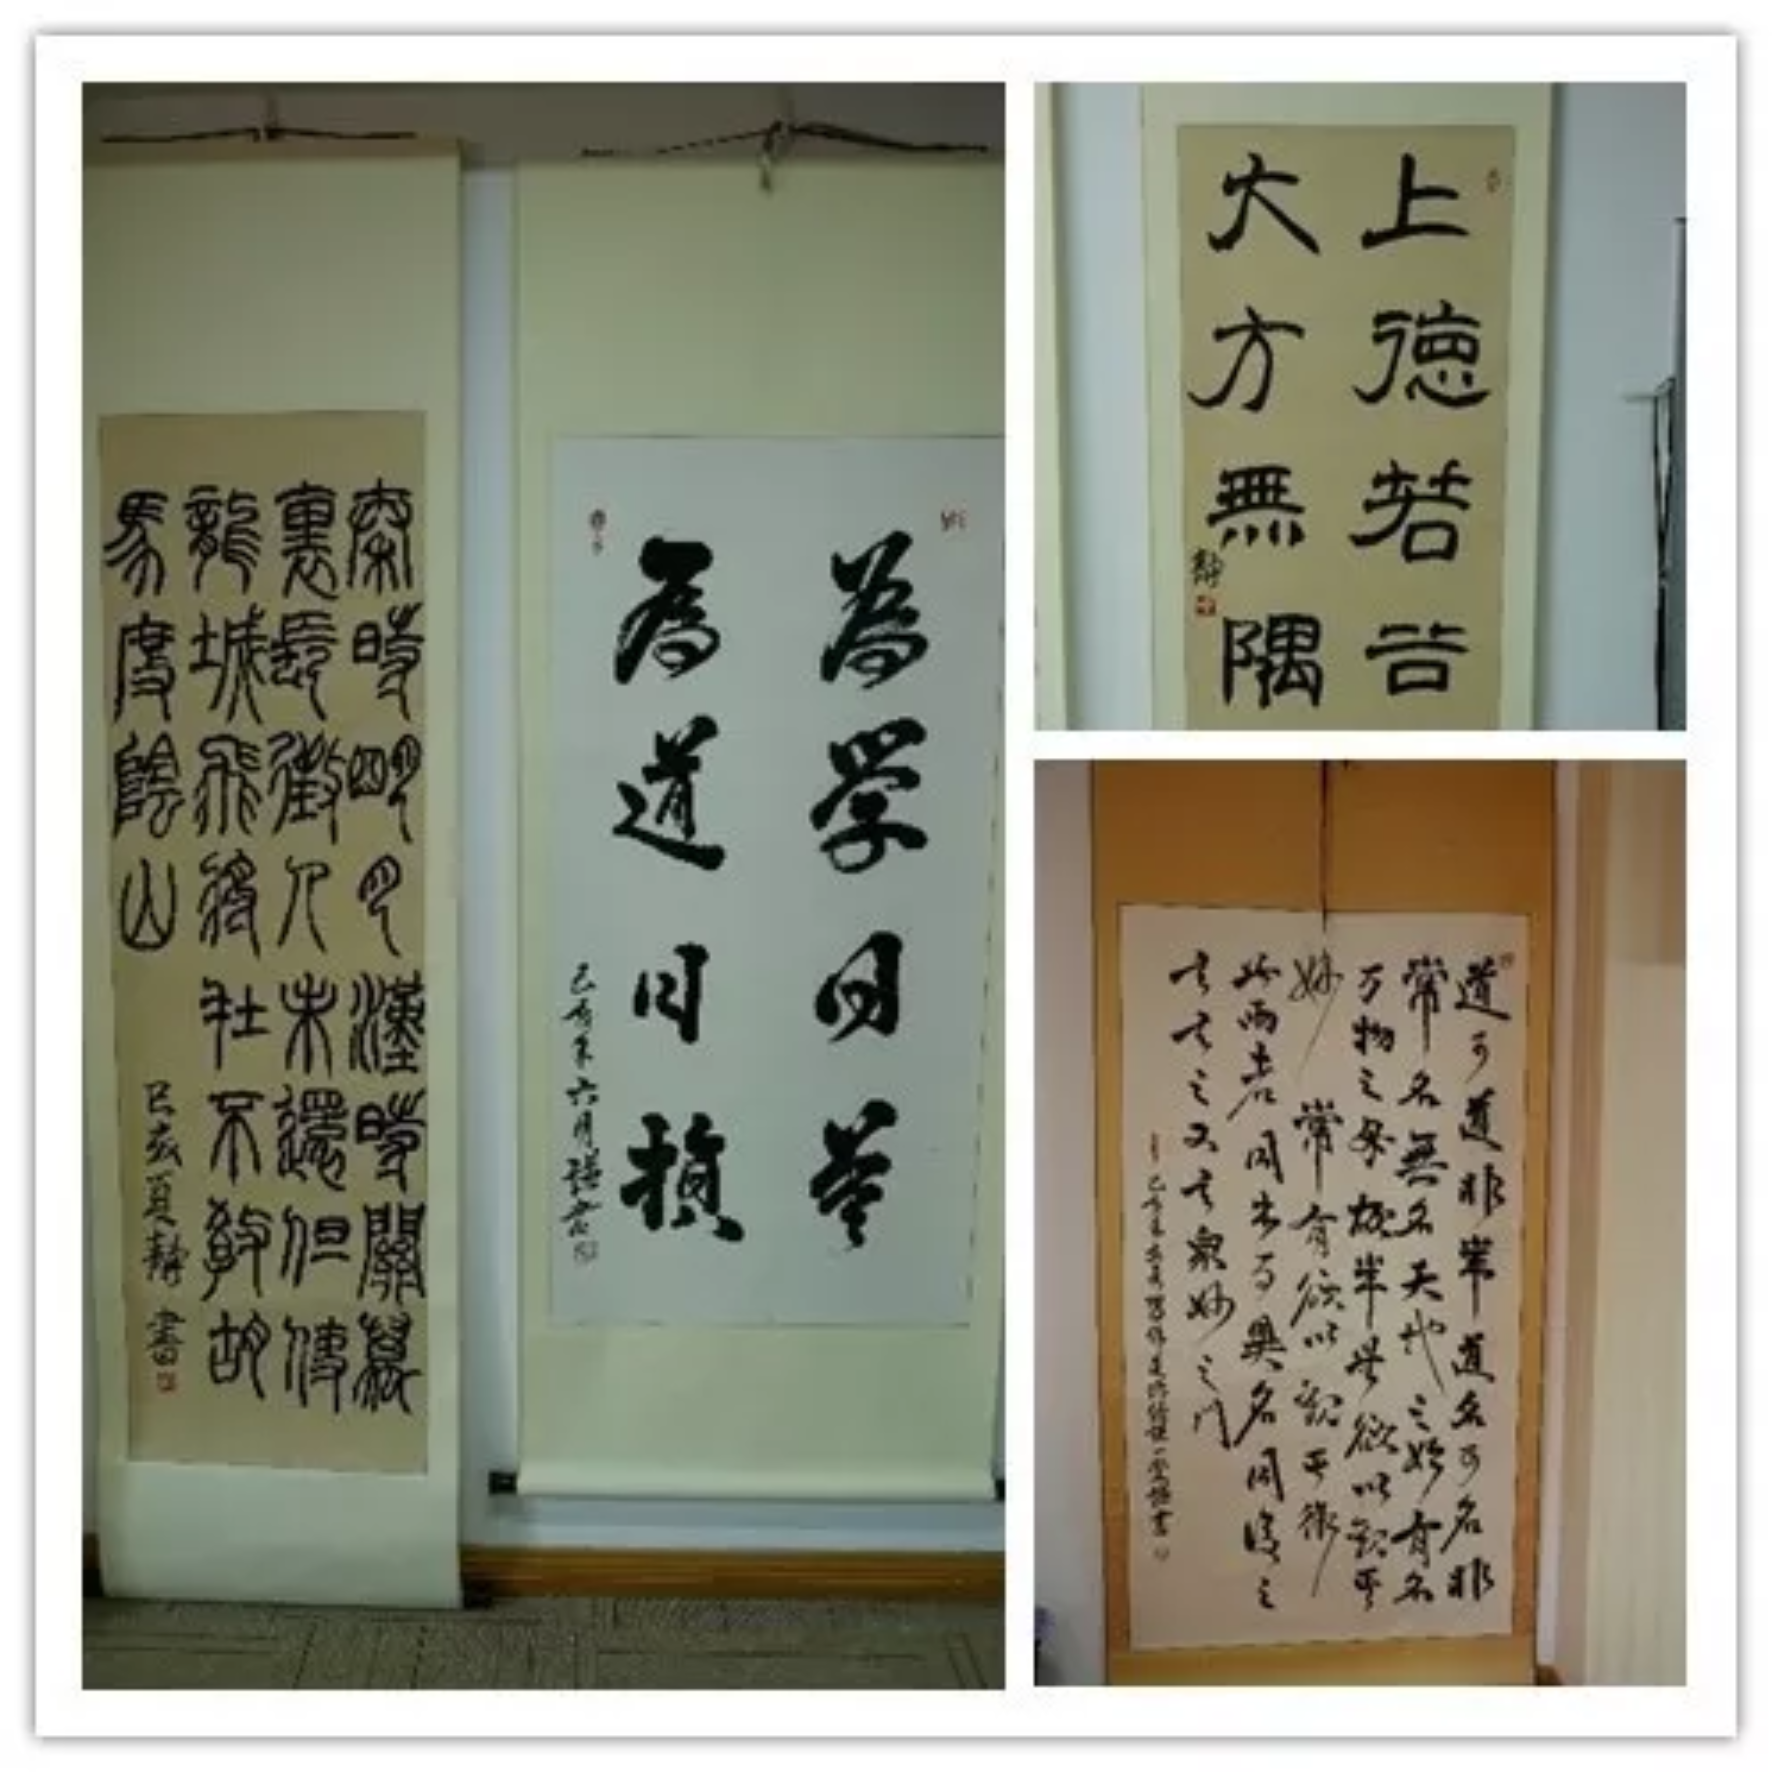 秦時明月漢時關萬
裏長徵人未還但使
龍城飛將在不教胡
馬度陰山
己亥夏靜書
為學日益
為道日損
己亥年六月書
上德若谷
大方無隅
靜
道可道非常道名可名非
常名無名天地之始有名
万物之母故常無欲以觀其
妙常有欲以觀其徼
此兩者同出而異名同謂之
玄玄之又玄衆妙之門